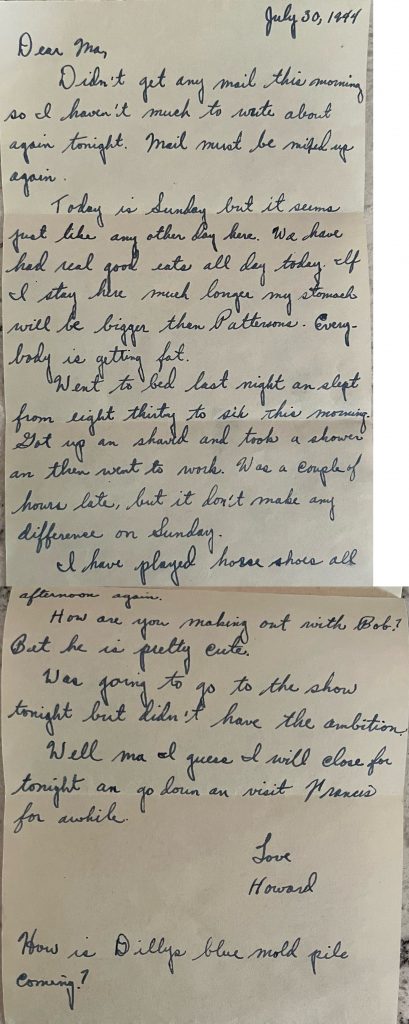 July 30, 1944
Dear Ma,
Didn't get any mail this morning
so I haven't much to write about
again tonight. Mail must be mixed up
again.
Today is Sunday but it seems
just like any other day here. We have
had real good eats all day today. If
I stay here much longer my stomach
will be bigger than Pattersons. Every-
body is getting fat.
Went to bed last night an slept
from eight thirty to six this morning.
Got up an shaved and took a shower
an then went to work. Was a couple of
hours late, but it don't make any
difference on Sunday.
I have played horse shoes all
afternoon again.
How are you making out with Bob?
Bet he is pretty cute.
Was going to go to the show
tonight but didn't have the ambition.
Well ma I guess I will close for
tonight an go down an visit Francis
for awhile.
Love
Howard
How is Dillys blue mold pile
coming?